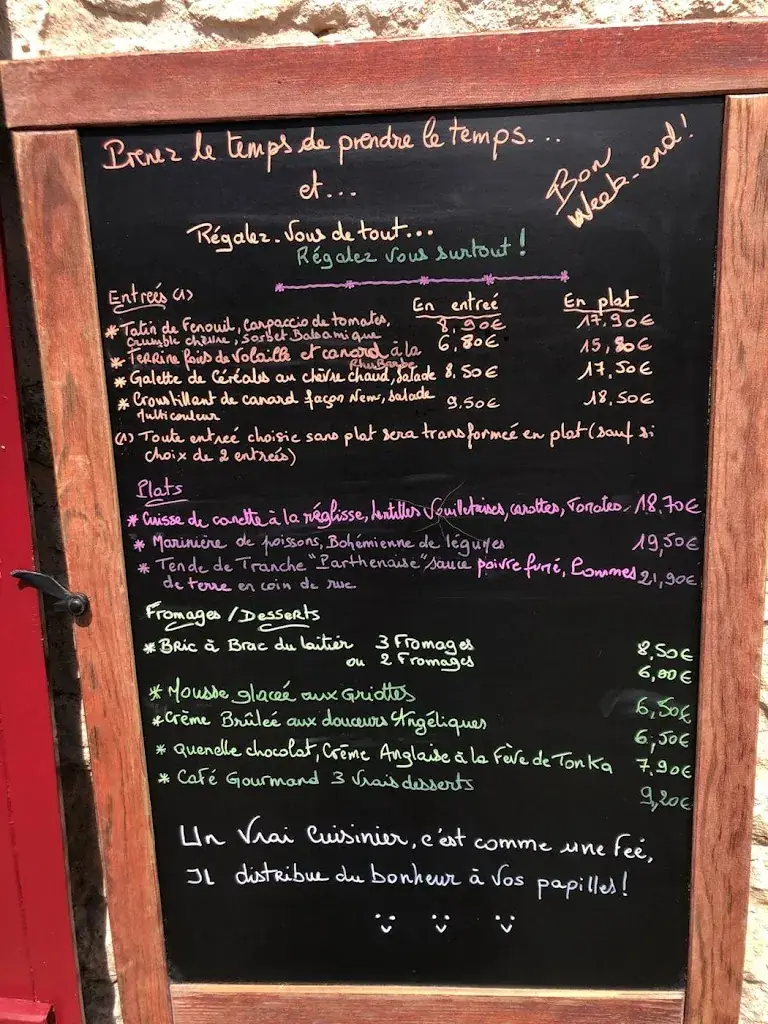 Prenez le temps de prendre le temps...
et...
Bon
Week-end!
Régalez-Vous de tout...
Régalez vous surtout!
Entreés (1)
En entreé
En plat
* Tatin de Fenouil, Carpaccio de tomates,
Crumble chèvre, Sorbet Balsamique
8,90€
17,90€
* Terrine foies de Volaille et canard à la
Rhubarbe
6,80€
15,80€
* Galette de Céréales au chèvre chaud, Salade
8,50€
17,50€
* Croustillant de canard façon Nem, Salade
Multicouleur
9,50€
18,50€
(1) Toute entreé choisie sans plat sera transformeé en plat (sauf si
choix de 2 entreés)
Plats
* Cuisse de canette à la réglisse, lentilles, carottes, Tomates - 18,70€
* Marinière de poissons, Bohémienne de légumes 19,50€
* Tende de Tranche "Parthenaise" sauce poivre fumé, Pommes
de terre en coin de rue
21,90€
Fromages / Desserts
* Bric à Brac du laitier 3 Fromages 8,50€
ou 2 Fromages 6,00€
* Mousse glaceé aux Griottes 6,50€
* Crème Brûleé aux douceurs Angéliques 6,50€
* Quenelle chocolat, Crème Anglaise à la Fève de Tonka 7,90€
* Café Gourmand 3 Vrais desserts 9,20€
Un Vrai Cuisinier, c'est comme une Feé,
Il distribue du bonheur à Vos papilles!